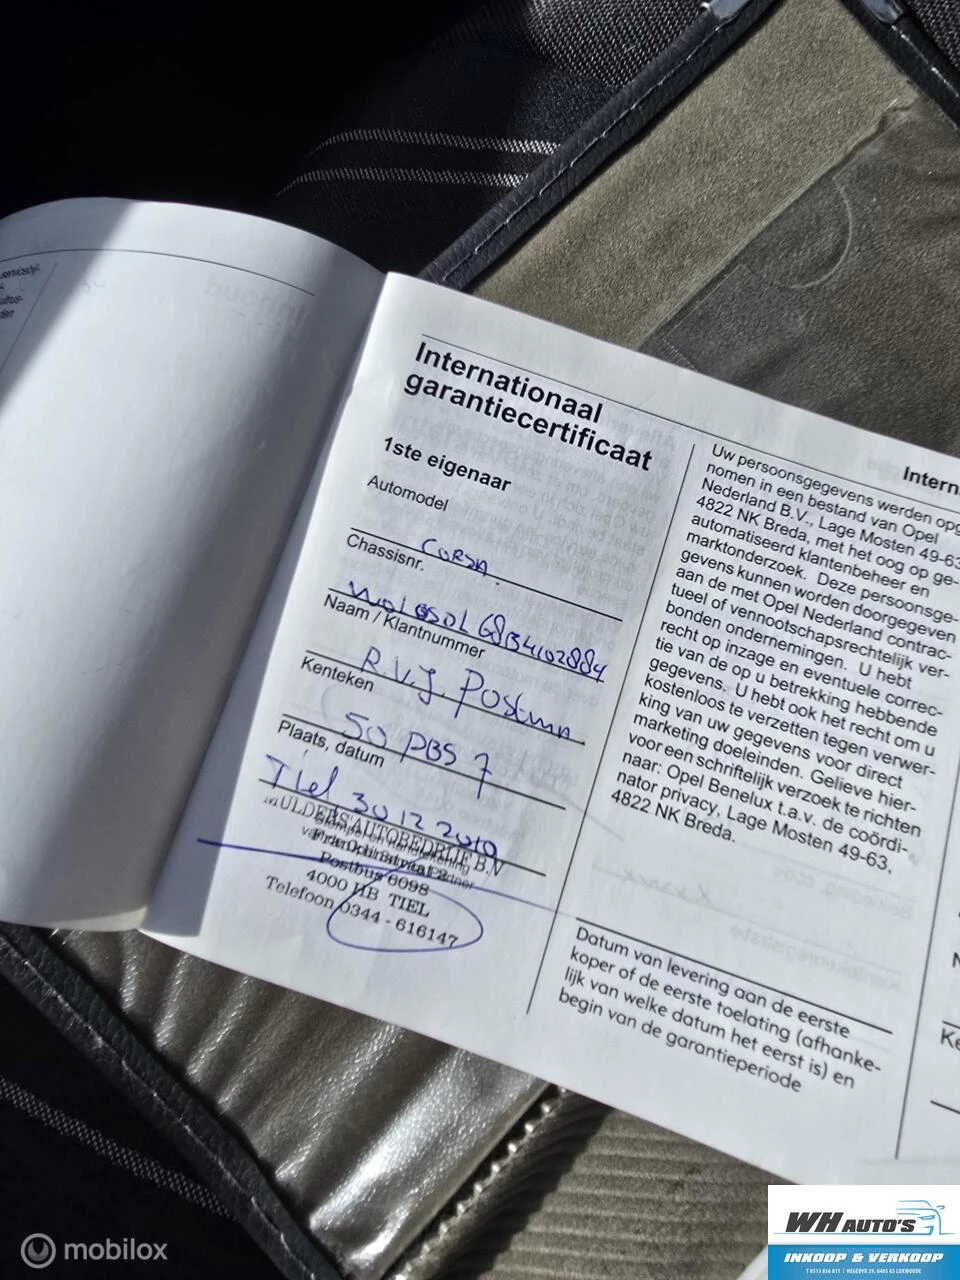 servicebij-
Internationaal
garantiecertificaat
1ste eigenaar
Automodel
CORSA.
Chassisnr.
Naam / Klantnummer
R.V.J. Postma
Kenteken
50 PBS 7
Plaats, datum
Tiel 30 12 2010
MULDERS AUTOBEDRIJF B.V
Postbus 6098
4000 HB TIEL
Telefoon 0344 - 616147
Uw persoonsgegevens werden opge-
nomen in een bestand van Opel
Nederland B.V., Lage Mosten 49-63
4822 NK Breda, met het oog op ge-
automatiseerd klantenbeheer en
marktonderzoek. Deze persoonsge-
gevens kunnen worden doorgegeven
aan de met Opel Nederland contrac-
tueel of vennootschapsrechtelijk ver-
bonden ondernemingen. U hebt
recht op inzage en eventuele correc-
tie van de op u betrekking hebbende
gegevens. U hebt ook het recht om u
kostenloos te verzetten tegen verwer-
king van uw gegevens voor direct
marketing doeleinden. Gelieve hier-
voor een schriftelijk verzoek te richten
naar: Opel Benelux t.a.v. de coördi-
nator privacy, Lage Mosten 49-63,
4822 NK Breda.
Datum van levering aan de eerste
koper of de eerste toelating (afhanke-
lijk van welke datum het eerst is) en
begin van de garantieperiode
Intern
Ke
mobilox
WH AUTO'S
INKOOP & VERKOOP
T 0513 856 811 | HEGEDYK 29, 8405 GS LUXWOUDE